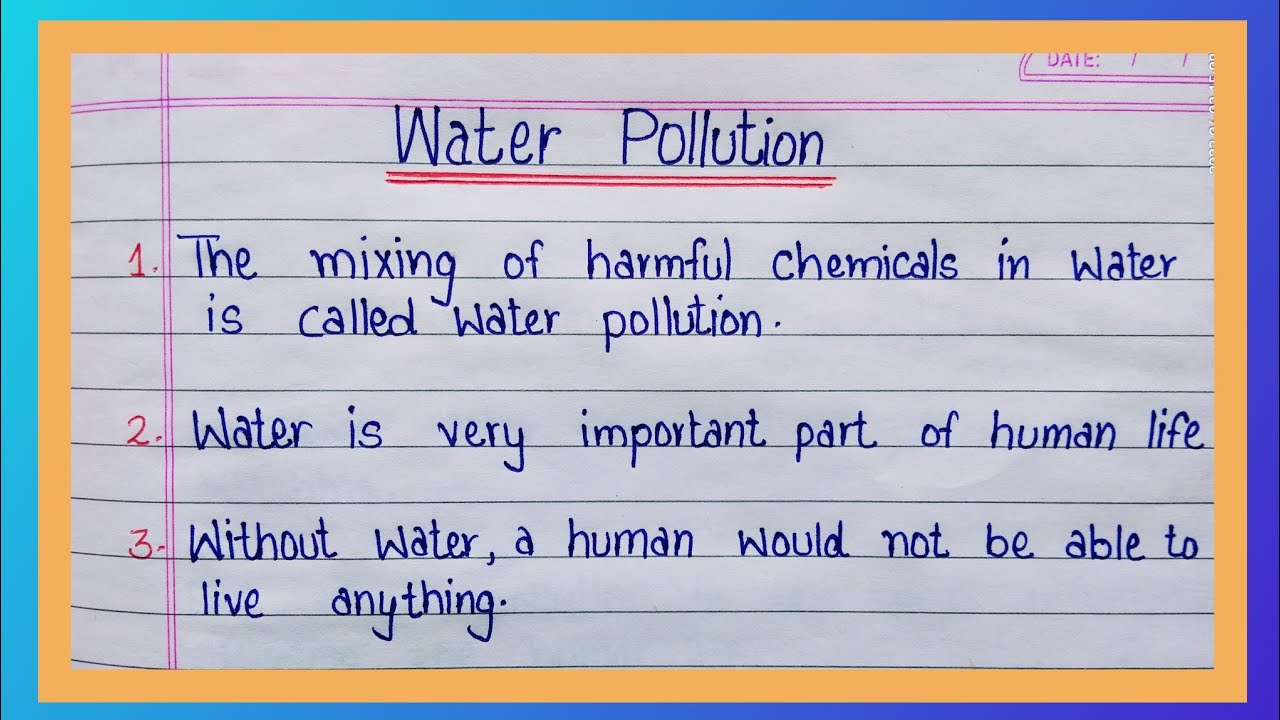 DATE: / /
Water Pollution
1. The mixing of harmful chemicals in water
is called water pollution.
2. Water is very important part of human life
3. Without water, a human would not be able to
live anything.